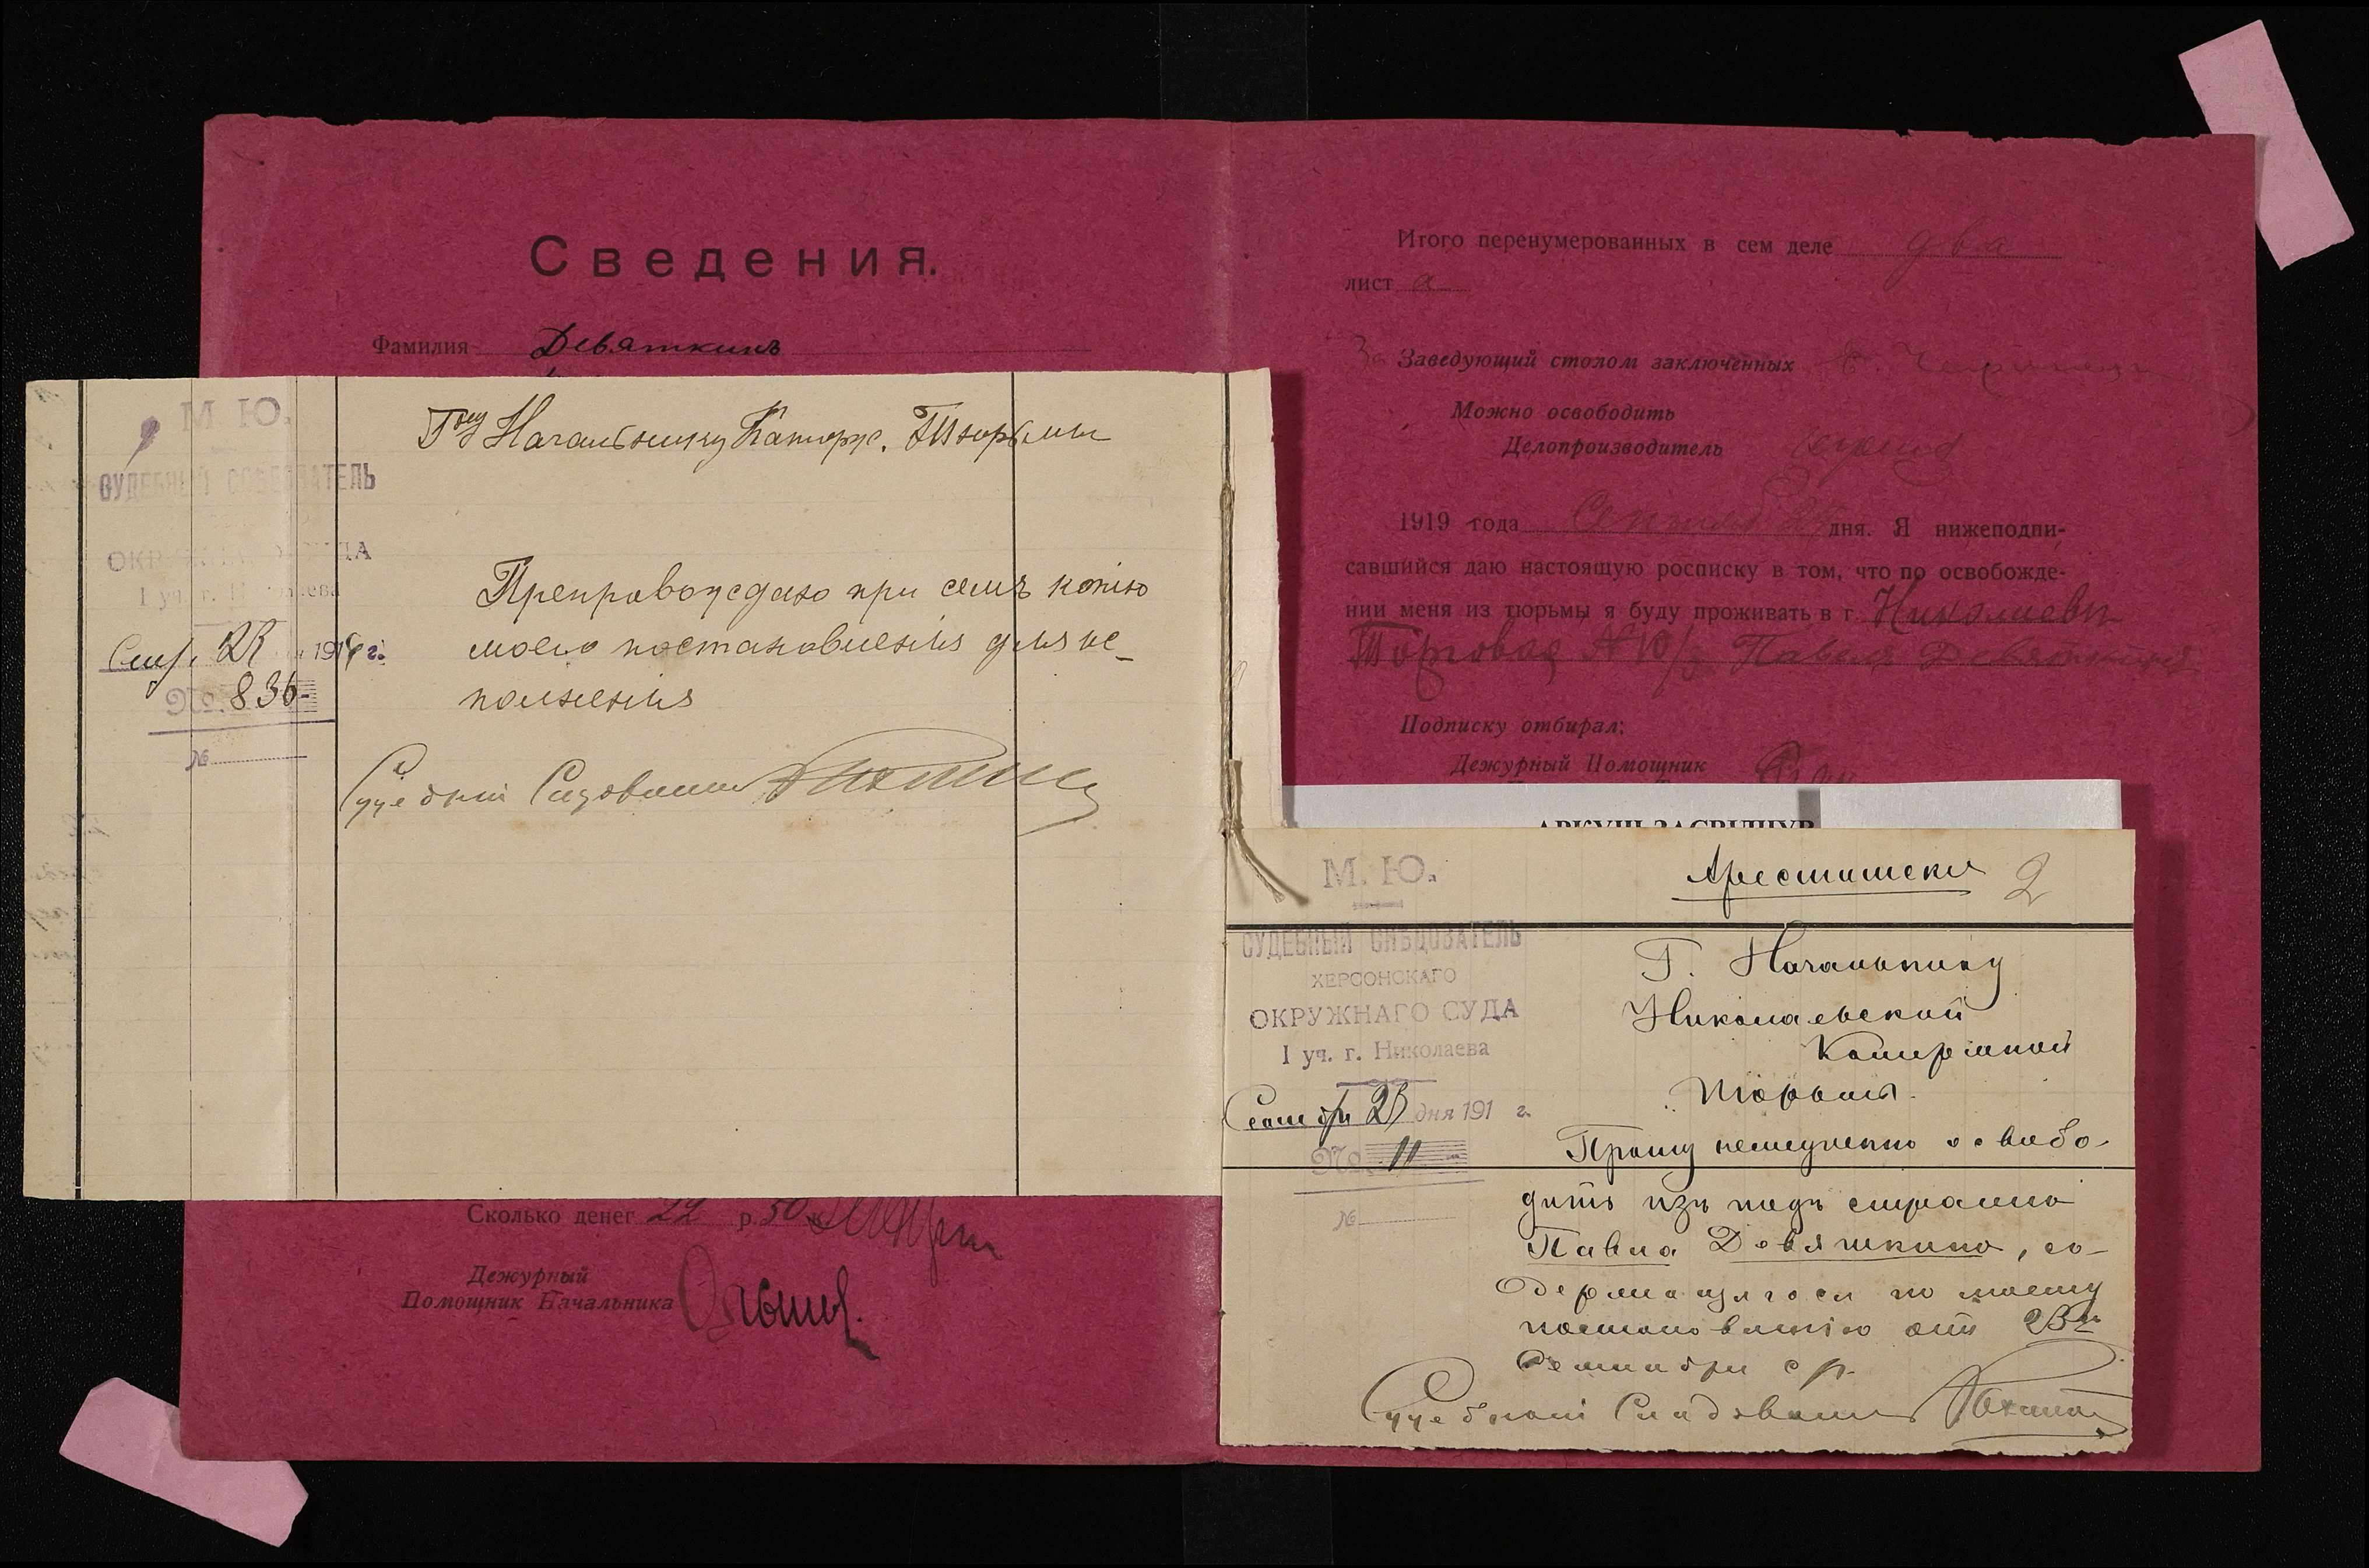 Сведения.
Фамилия Девяткинъ
М. Ю.
СУДЕБНЫЙ СЛѢДОВАТЕЛЬ
I уч. г.
Сент. 1919 г.
№ 836
№
Г-ну Начальнику Каторж. Тюрьмы
Препровождаю при семъ копію
моего постановленія для ис-
полненія
Судебный Слѣдователь
Сколько денег 22 р. 50 к.
Дежурный
Помощник Начальника
Итого перенумерованных в сем деле два
лист а
За Заведующий столом заключенных
Можно освободить
Делопроизводитель
1919 года дня. Я нижеподпи-
савшийся даю настоящую росписку в том, что по освобожде-
нии меня из тюрьмы я буду проживать в г. Николаевъ
Торговая № 10/ Павел Девяткин
Подписку отбирал:
Дежурный Помощник
Арестантское 2
М. Ю.
СУДЕБНЫЙ СЛѢДОВАТЕЛЬ
ХЕРСОНСКАГО
ОКРУЖНАГО СУДА
I уч. г. Николаева
Сентября дня 191 г.
№ 11
№
Г. Начальнику
Николаевской
Каторжной
Тюрьмы.
Прошу немедленно освобо-
дить изъ подъ стражи
Павла Девяткина, со-
держащагося по моему
постановленію отъ 23го
Сентября с/г.
Судебный Слѣдователь